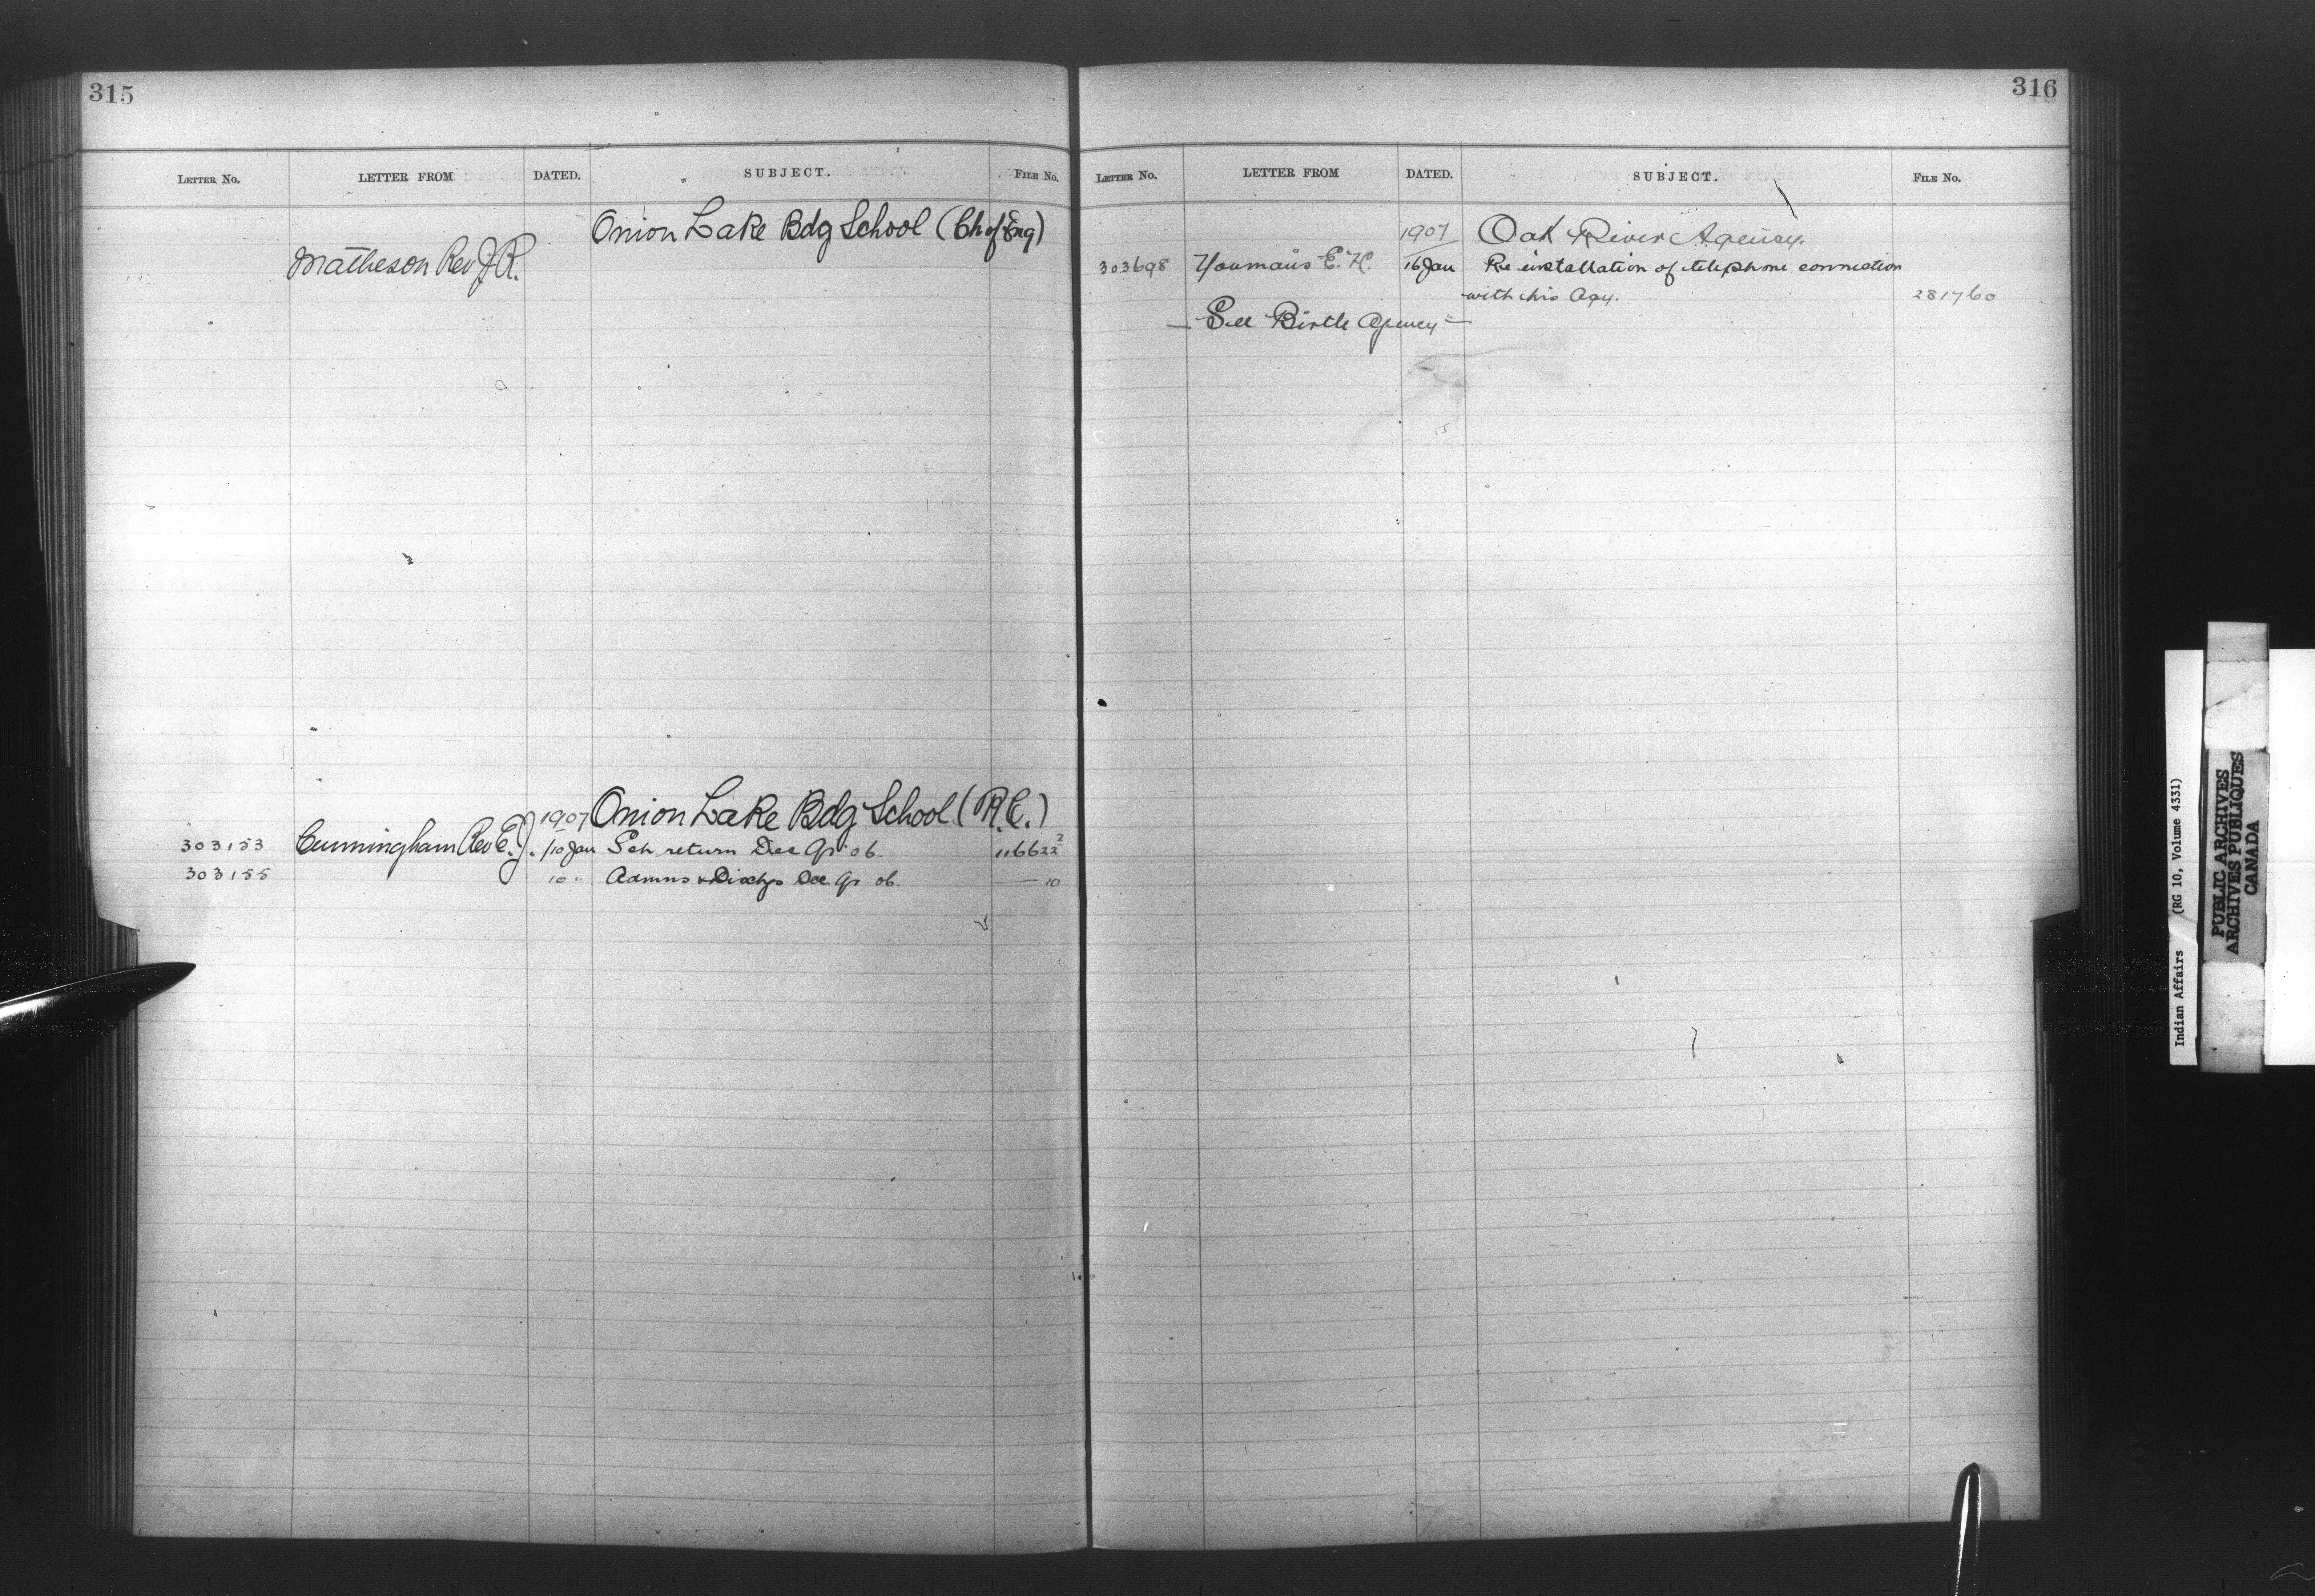 315
LETTER No. LETTER FROM DATED. SUBJECT. FILE No.
Onion Lake Bdg School (Ch of Eng)
Matheson Rev J. R.
1907 Onion Lake Bdg School (R.C.)
303153 Cunningham Rev E. J. 10 Jan Sch return Dec Qr 06. 116622 2
303155 10 " Admns & Dischgs Dec Qr 06. — 10
316
LETTER No. LETTER FROM DATED. SUBJECT. FILE No.
1907 Oak River Agency.
303698 Youmans E. H. 16 Jan Re installation of telephone connection
with his Agy. 281760
— See Birtle Agency —
Indian Affairs (RG 10, Volume 4331)
PUBLIC ARCHIVES
ARCHIVES PUBLIQUES
CANADA